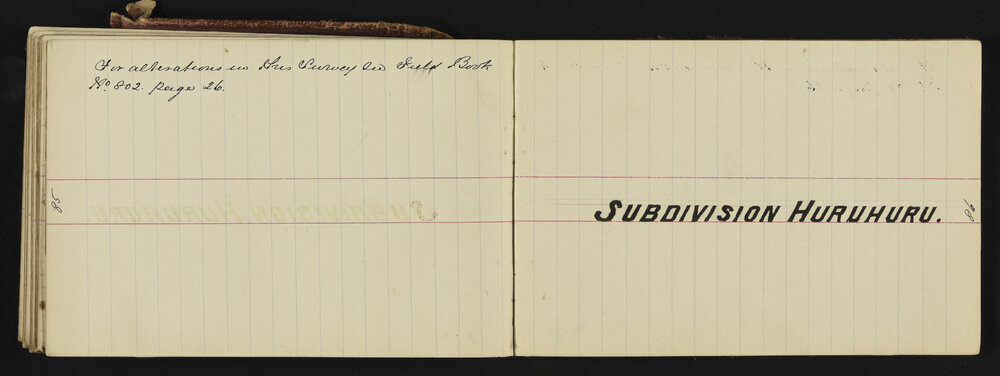 For alterations in this Survey see Field Book
No. 802. page 26.
SUBDIVISION HURUHURU.